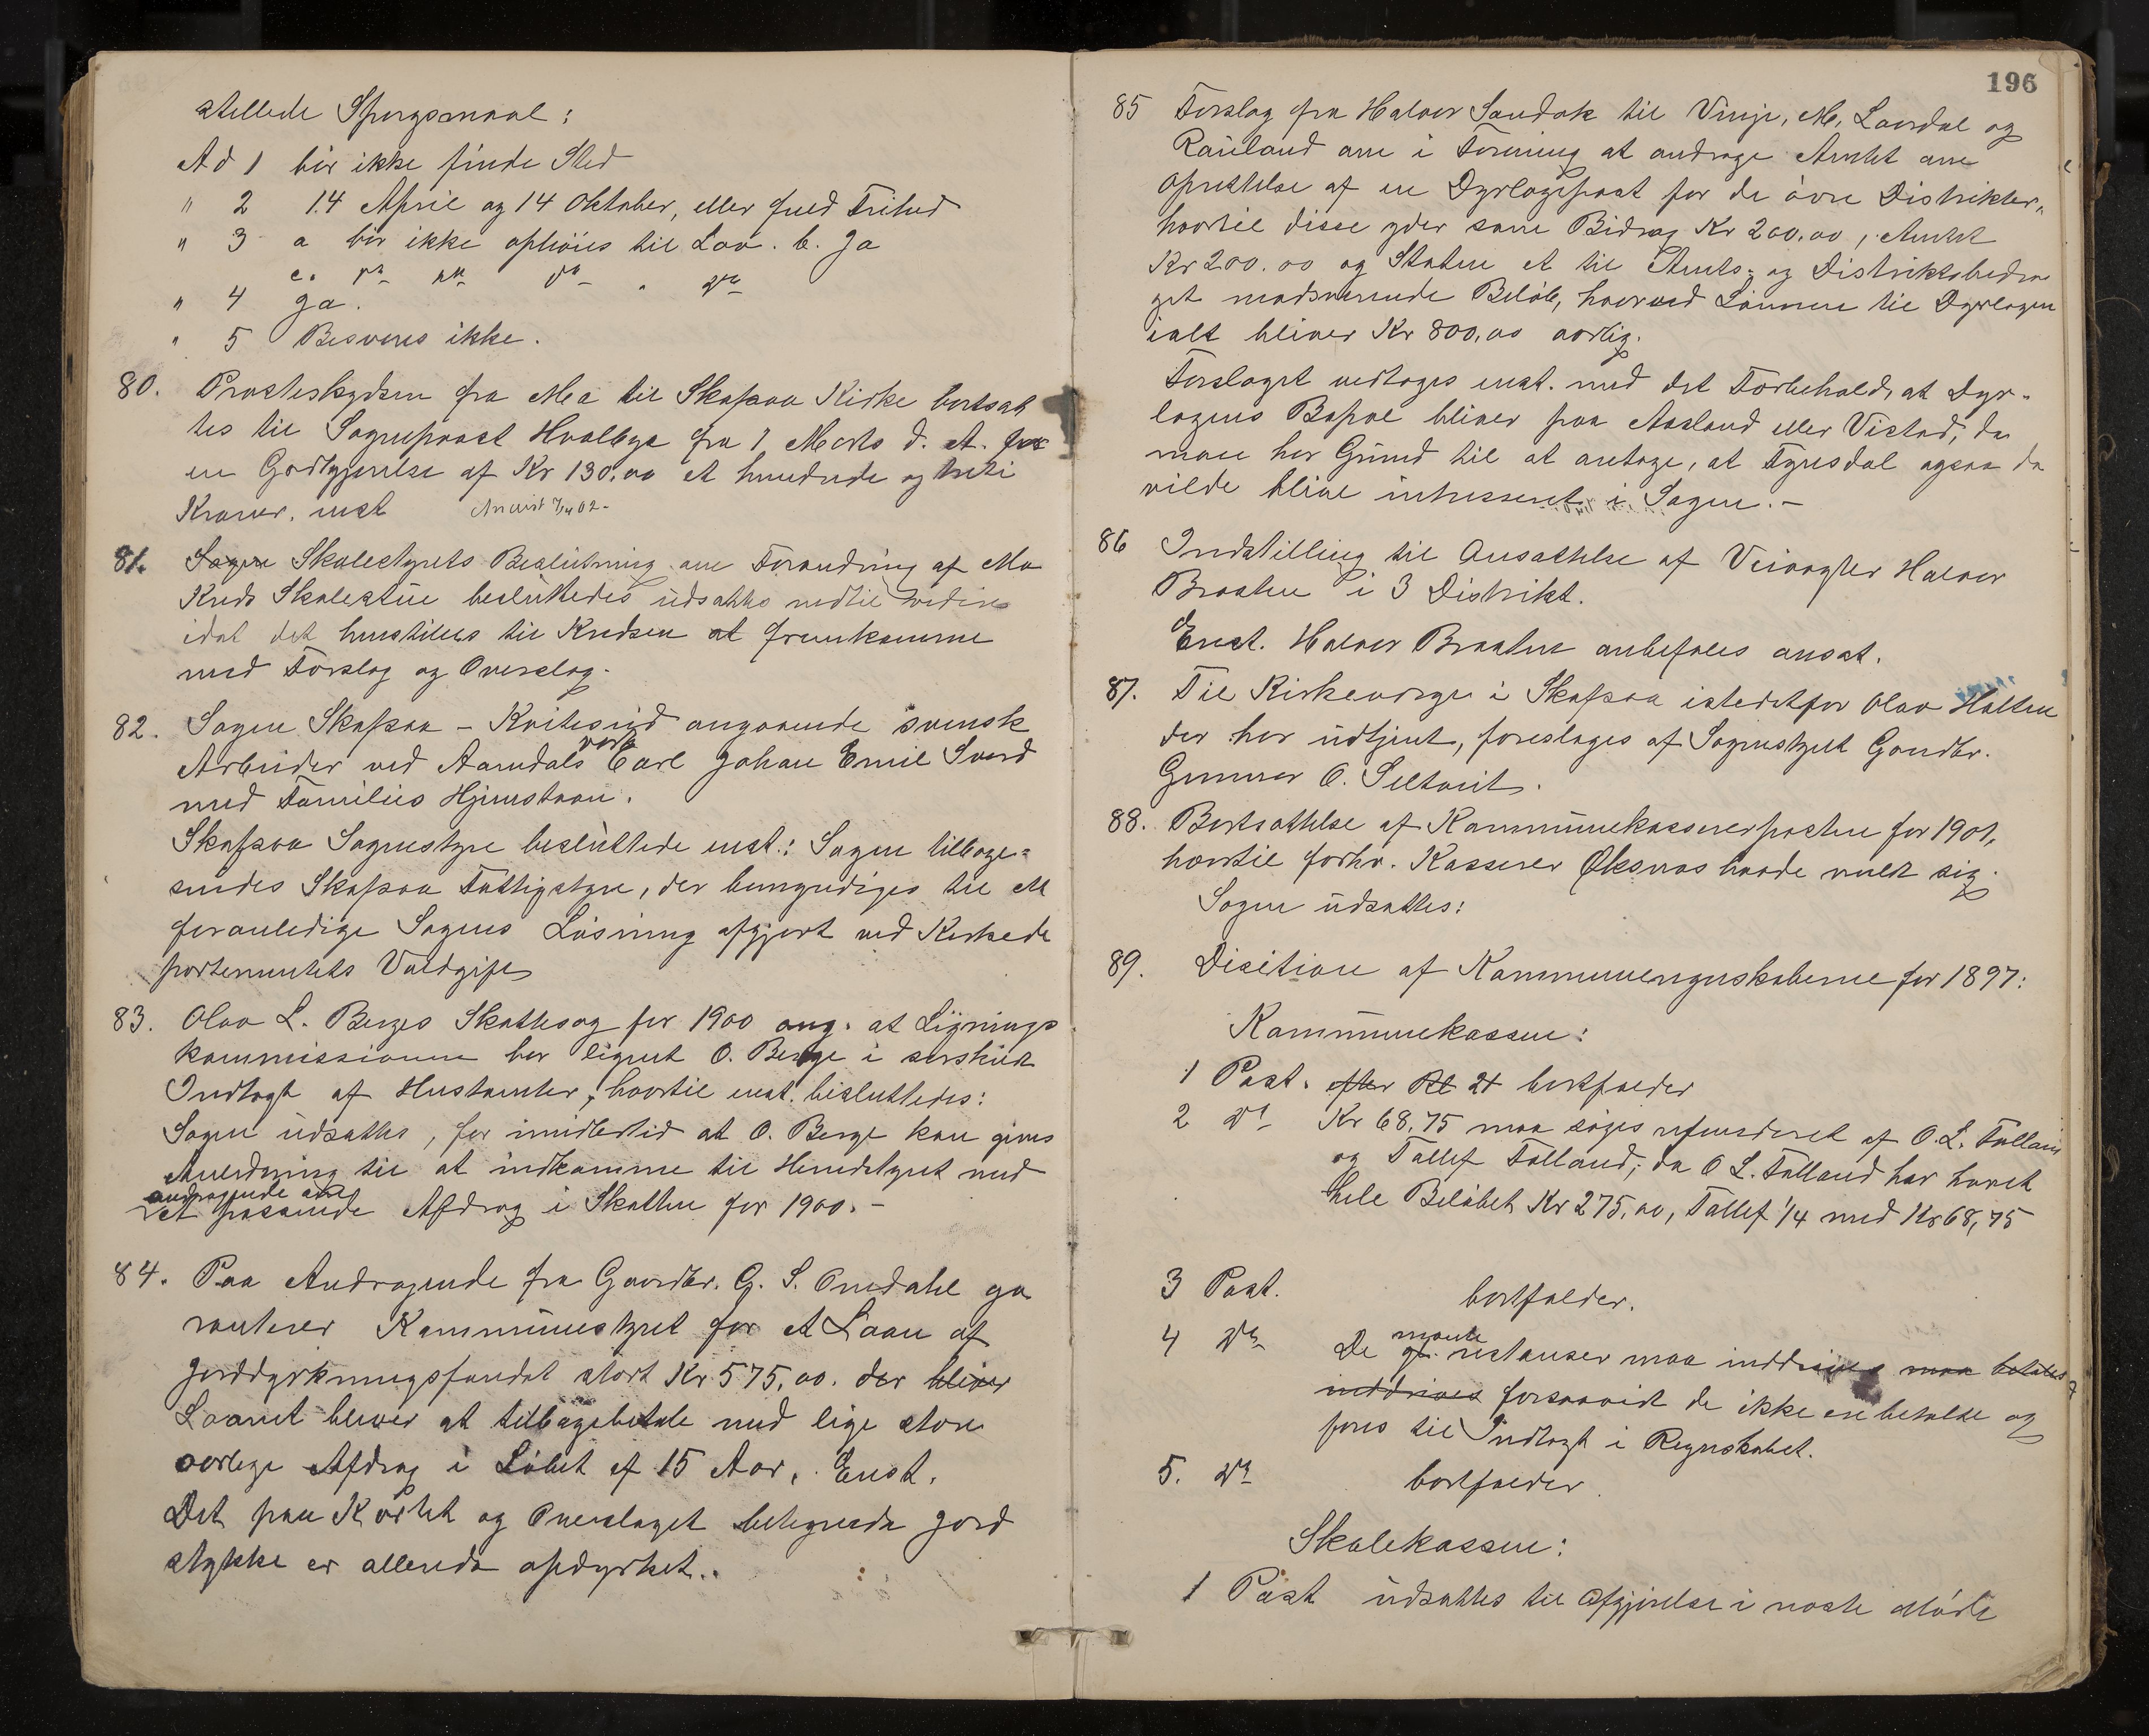 stellede Spørgsmaal:
Ad 1 bør ikke finde Sted
" 2 14 April og 14 Oktober, eller fuld Frihed
" 3 a bør ikke ophöies til Lov. b. Ja
c. Do Do Do
" 4 Ja.
" 5 Besvares ikke.
80. Prosteskydsen fra Mo til Skafsaa Kirke bortsat
tes til Sogneprest Hvalbye fra 1 Marts d. A. for
en Godtgjørelse af Kr 130,00 et hundrede og treti
Kroner. enst
81. Sagen Skolestyrets Beslutning om Forandring af Mo
Kreds Skolestue besluttedes udsattes indtil videre
idet det henstilles til Kredsen at fremkomme
med Forslag og Overslag.
82. Sagen Skafsaa - Kviteseid angaaende svensk
Arbeider ved Aamdals verk Carl Johan Emil Sverd
med Families Hjemstavn.
Skafsaa Sognestyre besluttede enst.: Sagen tilbage=
sendes Skafsaa Fattigstyre, der bemyndiges til at
foranledige Sagens Lösning afgjort ved Kirkede
partementets Voldgift
83. Olav L. Berges Skattesag for 1900 ang. at Lignings
kommissionen har lignet O. Berge i særskilt
Indtægt af Hustomter, hvortil enst. besluttedes:
Sagen udsattes, for imidlertid at O. Berge kan gives
Anledning til at indkomme til Herredstyret med
andragende om
et passende Afdrag i Skatten for 1900. -
84. Paa Andragende fra Gaardbr. G. S. Omdahl ga
ranterer Kommunestyret for et Laan af
Jorddyrkningsfondet stort Kr 575,00. der bliver
Laanet bliver at tilbagebetale med lige store
aarlige Afdrag i Löbet af 15 Aar. Enst.
Det paa Kartet og Overslaget betegnede Jord
stykke er allerede opdyrket.
196
85 Forslag fra Halvor Sandok til Vinje, M, Laardal og
Rauland om i Forening at andrage Amtet om
Oprettelse af en Dyrlægepost for de övre Distrikter,
hvortil disse yder som Bidrag Kr 200.00, Amtet
Kr 200.00 og Staten et til Amts- og Distriktsbidra
get modsvarende Belöb, hvorved Lönnen til Dyrlægen
ialt bliver Kr 800,00 aarlig.
Forslaget vedtoges enst. med det Forbehold, at Dyr-
lægens Bopæl bliver paa Aasland eller Vistad, da
man har Grund til at antage, at Fyresdal ogsaa da
vilde blive interesseret i Sagen. -
86 Indstilling til Ansættelse af Veivogter Halvor
Braaten i 3 Distrikt.
Enst. Halvor Braaten anbefales ansat.
87. Til Kirkeværge i Skafsaa istedetfor Olav Halten
der har udtjent, foreslages af Sognestyret Gaardbr.
Gunnar O. Seltveit.
88. Bortsættelse af Kommunekassererposten for 1901,
hvortil forhv. Kasserer Øksnas havde meldt sig.
Sagen udsattes:
89. Disition af Kommuneregnskaberne for 1897:
Kommunekassen:
1 Post. efter Rt 21 bortfalder
2 Do Kr 68,75 maa söges refunderet af O. L. Falland
og Tallef Falland, da O L. Falland har hævet
hele Belöbet Kr 275,00, Tallef 1/4 med Kr 68,75
3 Post. bortfalder.
4 Do De gl. restanser maa inddrives maa betales
inddrives forsaavidt de ikke ere betalte og
föres til Indtægt i Regnskabet.
5. Do bortfalder.
Skolekassen:
1 Post udsattes til Afgjørelse i næste Möde